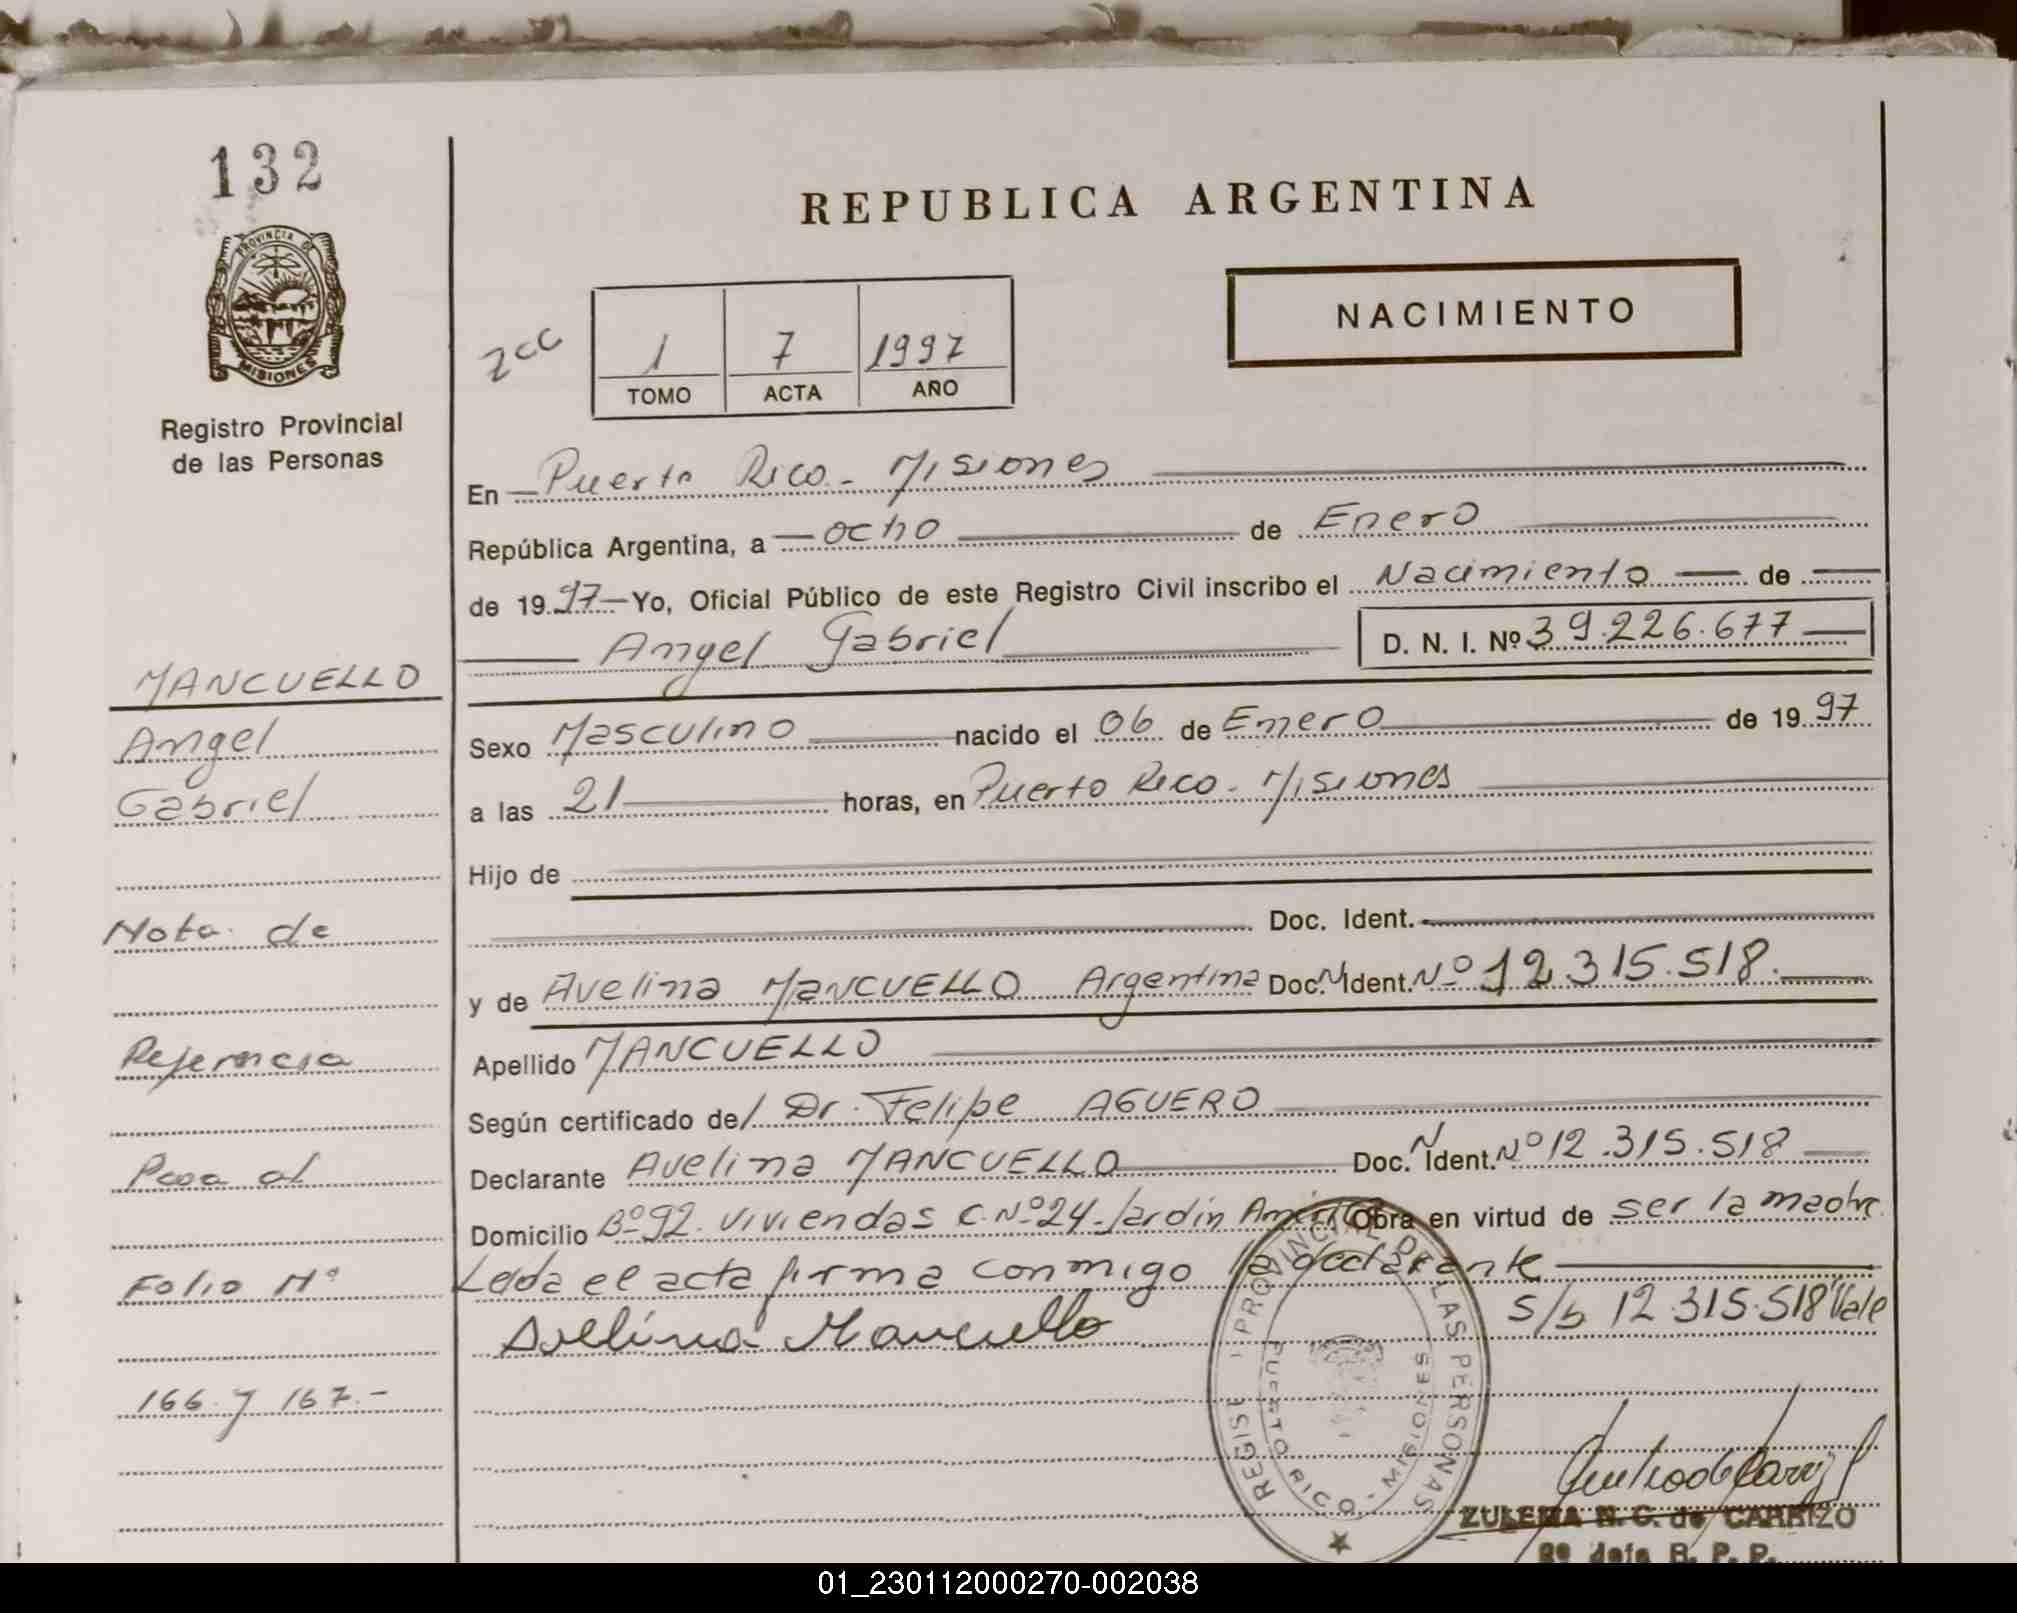 132
REPUBLICA ARGENTINA
PROVINCIA DE
MISIONES
NACIMIENTO
zcc
1 7 1997
TOMO ACTA AÑO
Registro Provincial
de las Personas
En Puerto Rico - Misiones
República Argentina, a ocho de Enero
de 1997 Yo, Oficial Público de este Registro Civil inscribo el Nacimiento de
Angel Gabriel D. N. I. Nº 39.226.677
MANCUELLO
Angel
Gabriel
Sexo Masculino nacido el 06 de Enero de 1997
a las 21 horas, en Puerto Rico - Misiones
Hijo de
Doc. Ident.
y de Avelina MANCUELLO Argentina Doc. N Ident. Nº 12.315.518.
Apellido MANCUELLO
Según certificado de/ Dr. Felipe AGUERO
Declarante Avelina MANCUELLO Doc. N Ident. Nº 12.315.518
Domicilio Bº 92 viviendas C. Nº 24 Jardín América Obra en virtud de ser la madre
Leida el acta firma conmigo la declarante
s/b 12.315.518 Vale
Avelina Mancuello
Nota de
Referencia
Pasa al
Folio Nº
166 y 167.-
REGISTRO PROVINCIAL DE LAS PERSONAS
PUERTO RICO - MISIONES
ZULEMA N. C. de CARRIZO
R. P. P.
01_230112000270-002038